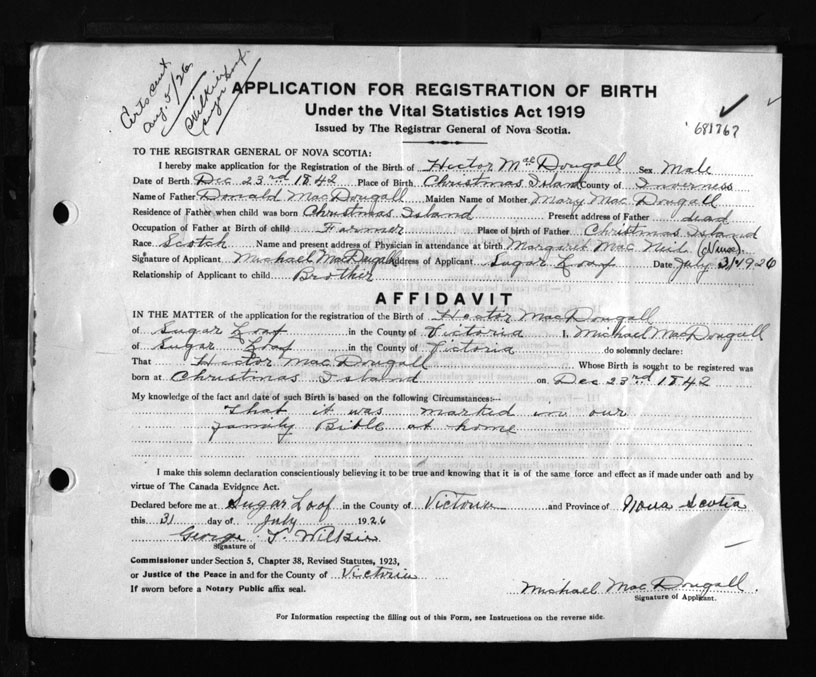 Certs sent
Aug. 5/26
Wilkie
Sugar Loaf
APPLICATION FOR REGISTRATION OF BIRTH
Under the Vital Statistics Act 1919
Issued by The Registrar General of Nova Scotia.
681767
TO THE REGISTRAR GENERAL OF NOVA SCOTIA:
I hereby make application for the Registration of the Birth of Hector MacDougall Sex Male
Date of Birth Dec 23rd 1842 Place of Birth Christmas Island County of Inverness
Name of Father Donald MacDougall Maiden Name of Mother Mary MacDougall
Residence of Father when child was born Christmas Island Present address of Father dead
Occupation of Father at Birth of child Farmer Place of birth of Father Christmas Island
Race Scotch Name and present address of Physician in attendance at birth Margaret MacNeil (Nurse)
Signature of Applicant Michael MacDougall Address of Applicant Sugar Loaf Date July 31 1926
Relationship of Applicant to child Brother
AFFIDAVIT
IN THE MATTER of the application for the registration of the Birth of Hector MacDougall
of Sugar Loaf in the County of Victoria I, Michael MacDougall
of Sugar Loaf in the County of Victoria do solemnly declare:
That Hector MacDougall Whose Birth is sought to be registered was
born at Christmas Island on Dec 23rd 1842
My knowledge of the fact and date of such Birth is based on the following Circumstances:—
That it was marked in our
family Bible at home
I make this solemn declaration conscientiously believing it to be true and knowing that it is of the same force and effect as if made under oath and by
virtue of The Canada Evidence Act.
Declared before me at Sugar Loof in the County of Victoria and Province of Nova Scotia
this 31 day of July 1926
George T. Wilkie
Signature of
Commissioner under Section 5, Chapter 38, Revised Statutes, 1923,
or Justice of the Peace in and for the County of Victoria
If sworn before a Notary Public affix seal.
Michael MacDougall.
Signature of Applicant.
For Information respecting the filling out of this Form, see Instructions on the reverse side.